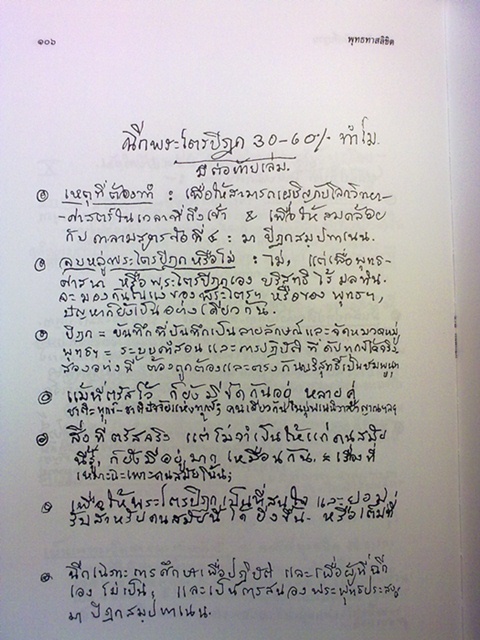 ๑๐๖
พุทธทาสลิขิต
ฉีกพระไตรปิฎก 30-60% ทำไม.
มีต่อท้ายเล่ม.
เหตุที่ต้องทำ : เพื่อให้สามารถเผชิญกับโลกวิทยา-
-ศาสตร์ในเวลาที่ถึงเข้า & เพื่อให้สอดคล้อย
กับ กาลามสูตรข้อที่ ๔ : มา ปิฎกสมฺปทาเนน.
ลบหลู่พระไตรปิฎกหรือไม่ : ไม่, แต่เพื่อพุทธ-
-ศาสนา หรือพระไตรปิฎกเอง บริสุทธิ์ ไร้มลทิน.
จะมองกันในแง่ของพระไตรฯ หรือของ พุทธฯ,
ปัญหาก็ยังเป็นอย่างเดียวกัน.
ปิฎก = บันทึกที่บันทึกเป็นลายลักษณ์ และจัดหมวดหมู่
พุทธฯ = ระบบคำสอน และการปฏิบัติ ที่ดับทุกข์ได้จริง
สองอย่างนี้ ต้องถูกต้องและตรงกัน
แม้ที่ตรัสไว้ ก็ยังมีขัดกันอยู่ หลายคู่
สิ่งที่ตรัสจริง แต่ไม่จำเป็นให้แก่คนสมัย
นี้รู้, ก็ยังมีอยู่มาก เหมือนกัน. เรื่องที่
เหมาะเฉพาะคนสมัยโน้น;
เพื่อให้พระไตรปิฎกเป็นที่สนใจ และยอม
รับสำหรับคนสมัยนี้ ได้ ยิ่งขึ้น- หรือเต็มที่
ฉีกเฉพาะการศึกษาเพื่อปฏิบัติ และเพื่อผู้ที่ฉีก
เอง ไม่เป็น, และเป็นการสนองพระพุทธประสงค์
มา ปิฎกสมฺปทาเนน.